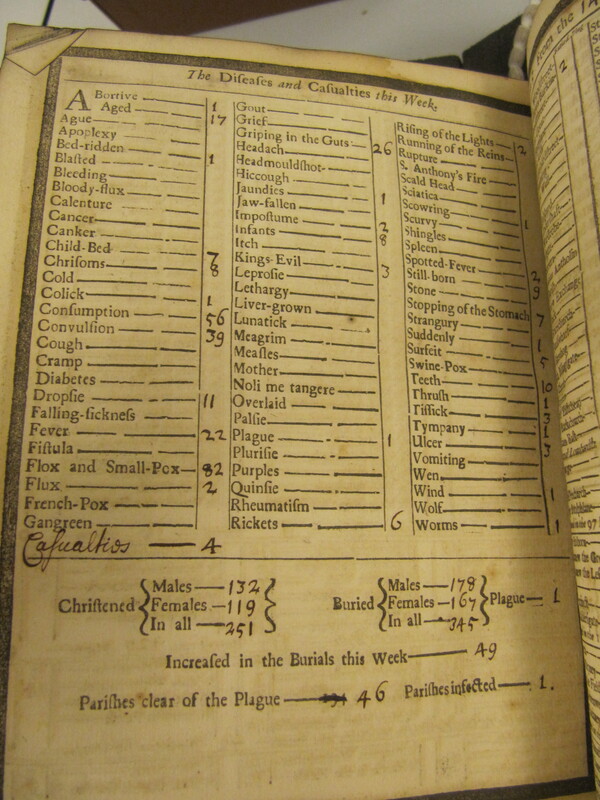 The Diseases and Casualties this Week.
Abortive
Aged 1
Ague 17
Apoplexy
Bed-ridden
Blasted 1
Bleeding
Bloody-flux
Calenture
Cancer
Canker
Child-Bed 7
Chrisoms 8
Cold
Colick 1
Consumption 56
Convulsion 39
Cough
Cramp
Diabetes
Dropsie 11
Falling-sickness
Fever 22
Fistula
Flox and Small-Pox 82
Flux 2
French-Pox
Gangreen
Casualties 4
Gout
Grief
Griping in the Guts 26
Headach
Headmouldshot
Hiccough
Jaundies 1
Jaw-fallen
Impostume 2
Infants 8
Itch
Kings-Evil 3
Leprosie
Lethargy
Liver-grown
Lunatick
Meagrim
Measles
Mother
Noli me tangere
Overlaid
Palsie
Plague 1
Plurisie
Purples
Quinsie
Rheumatism
Rickets 6
Rising of the Lights 2
Running of the Reins
Rupture
S. Anthony's Fire
Scald Head
Sciatica
Scowring 1
Scurvy
Shingles
Spleen
Spotted-Fever 2
Still-born 9
Stone
Stopping of the Stomach 7
Strangury 1
Suddenly
Surfeit 5
Swine-Pox
Teeth 10
Thrush 1
Tissick 3
Tympany 1
Ulcer 3
Vomiting
Wen
Wind 1
Wolf
Worms 1
Christened
Males 132
Females 119
In all 251
Buried
Males 178
Females 167
In all 345
Plague 1
Increased in the Burials this Week 49
Parishes clear of the Plague 46 Parishes infected 1.